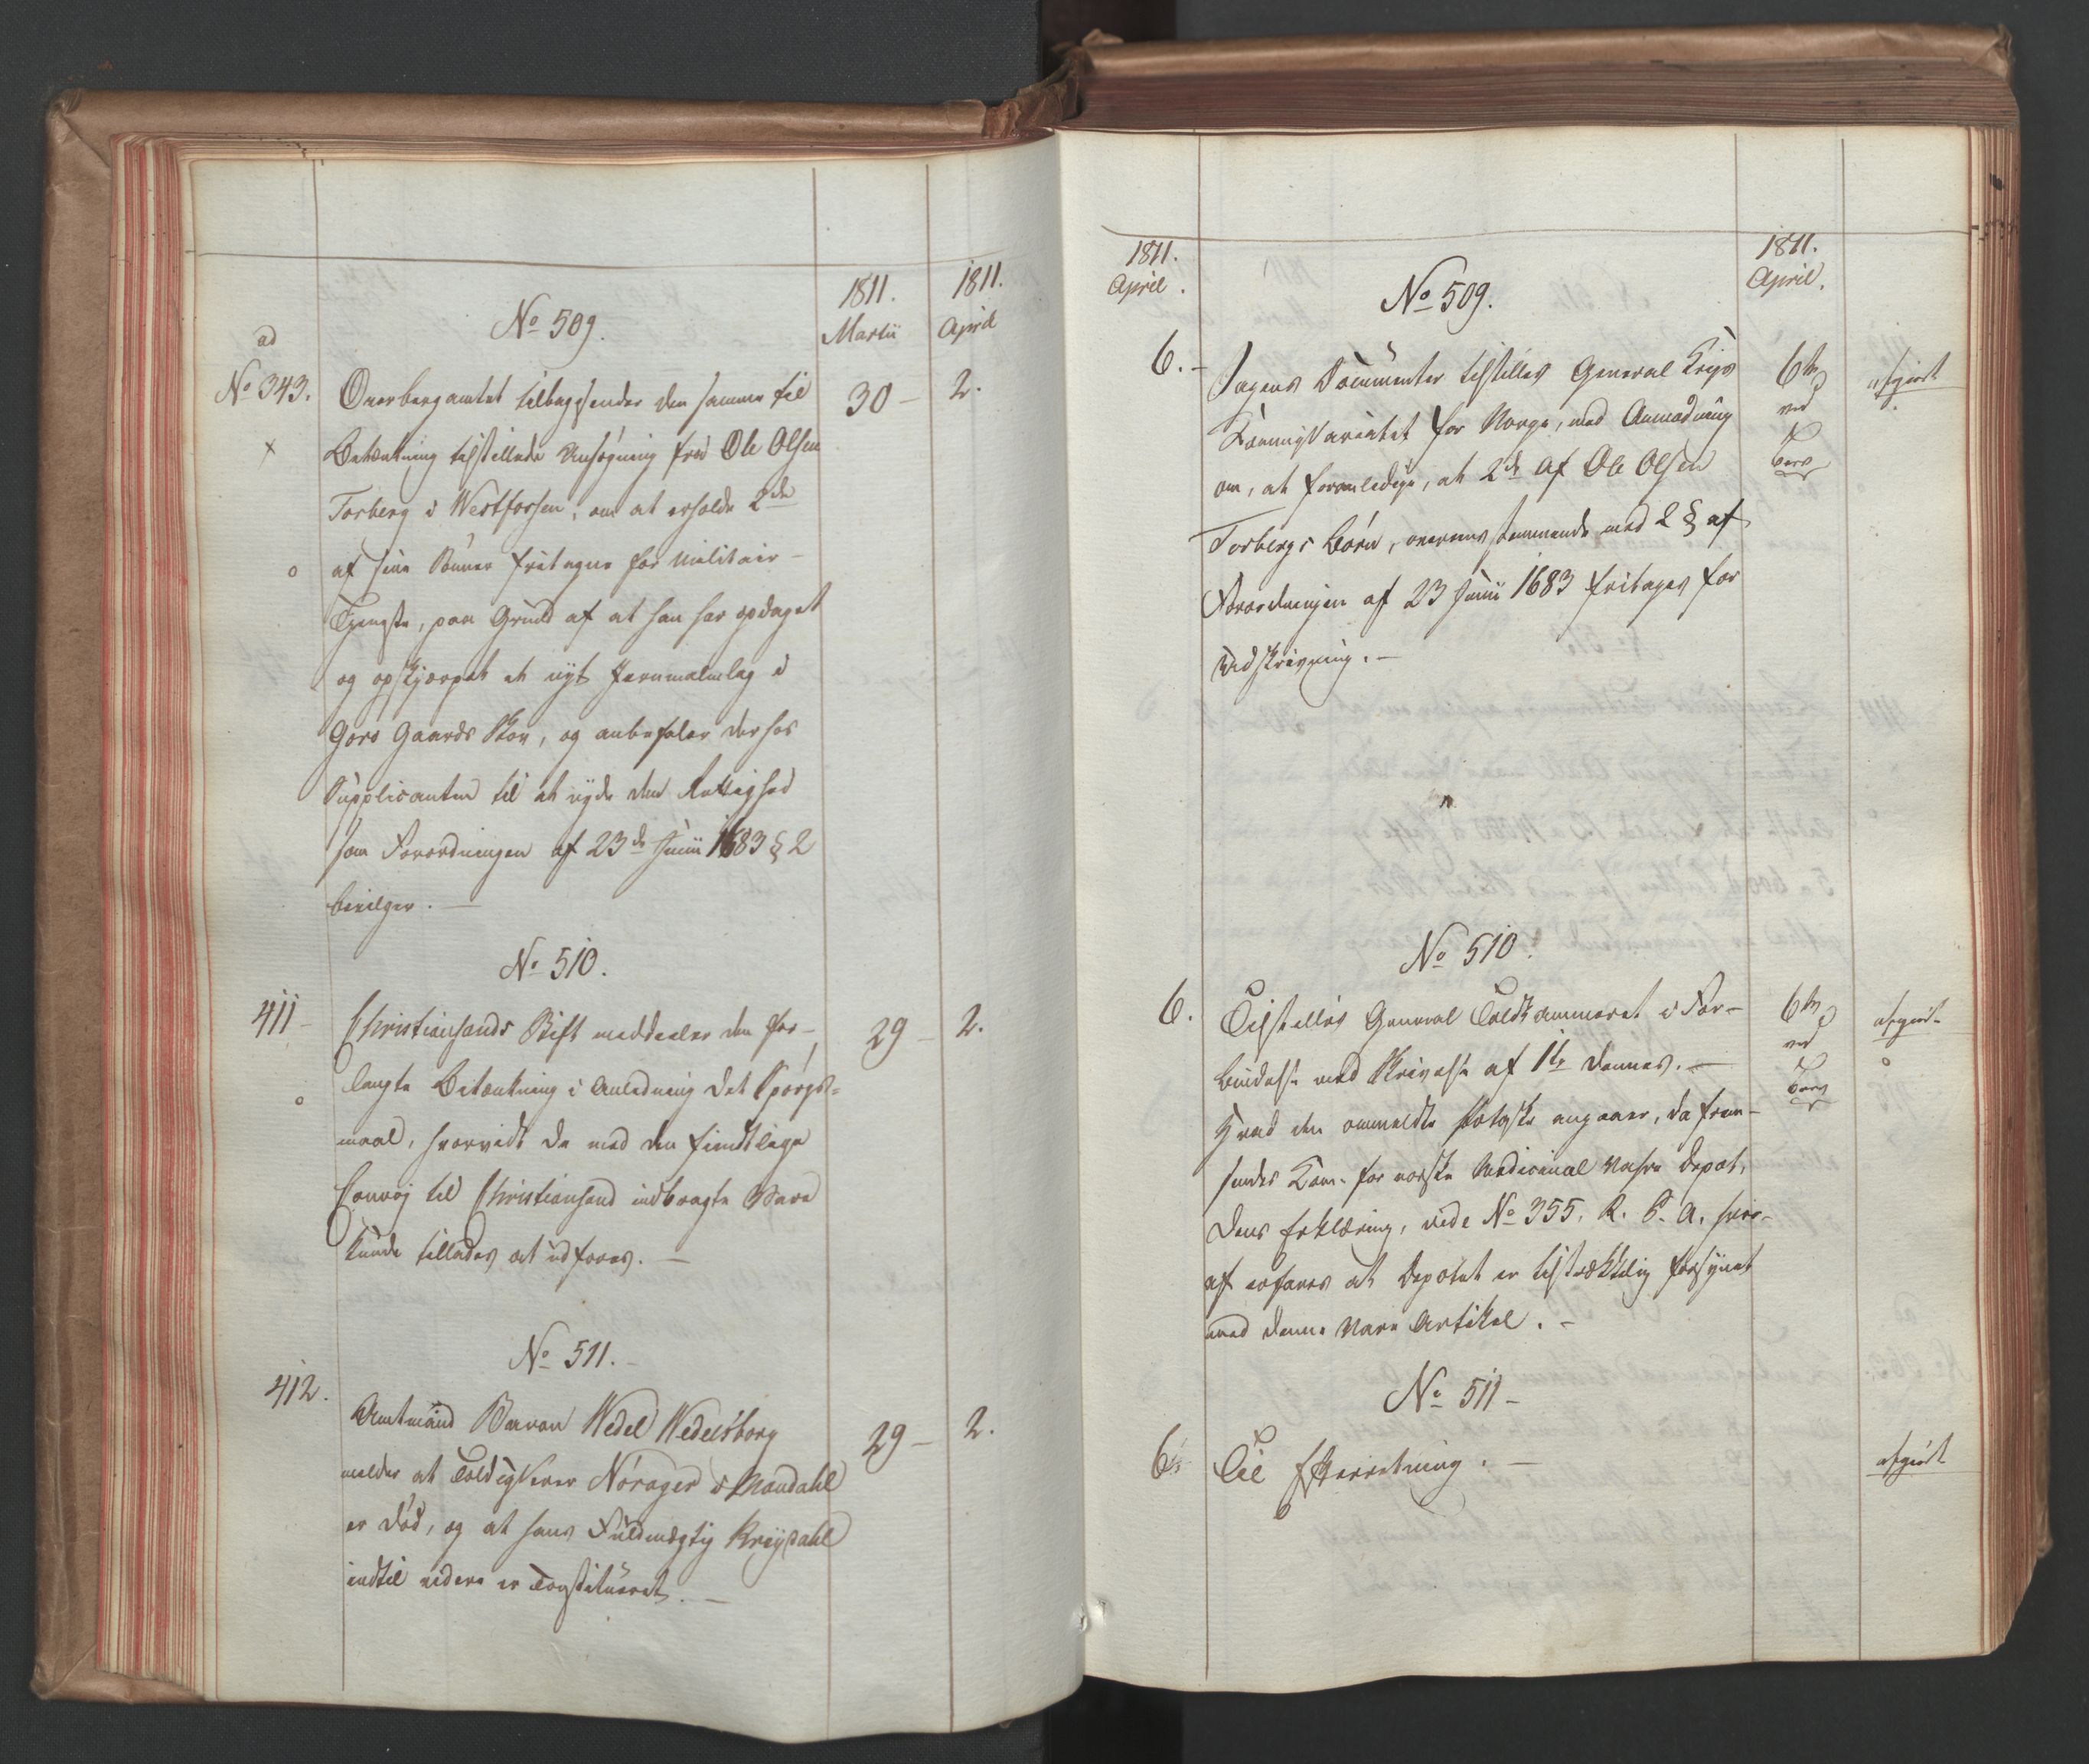 1811.
Martii
1811.
April
No 509.
ad
No 343.
Overbergamtet tilbagesender den samme til
30 –
2.
Betænkning tilstillede Ansøgning fra Ole Olsen
Torberg i Westfossen, om at erholde 2de
af sine Sønner fritagne for Militair-
Tjeneste, paa Grund af at han har opdaget
og opskjærpet et nyt Jernmalmlag i
Gaards Skov, og anbefaler derhos
Supplicanten til at nyde den Rettighed
som Forordningen af 23de Junii 1683 § 2
bevilger. –
No 510.
411 –
Christiansands Stift meddeeler den for-
29 –
2.
langte Betænkning i Anledning det Spørgs-
maal, hvorvidt de med den fiendtlige
Convoj til Christiansand indbragte Vare
kunde tillades at udføres. –
No 511. –
412.
Amtmand Baron Wedel Wedelsborg
29 –
2.
melder at Toldinspecteur Nørager i Mandahl
er død, og at hans Fuldmægtig
indtil videre er constitueret. –
1811.
April.
1811.
April.
No 509.
6. –
Sagens Documenter tilstilles General Krigs
6te
afgiort
Commissariatet for Norge, med Anmodning
ved
om, at foranledige, at 2de af Ole Olsen
Torbergs Børn, overensstemmende med 2 § af
Forordningen af 23 Junii 1683 fritages for
Udskrivning. –
No 510.
6.
Tilstilles General Toldkammeret i For-
6te
afgiort
bindelse med Skrivelse af 1te dennes. –
ved
Hvad den ommeldte angaaer, da frem-
sendes Com. for norske Medicinal Vahre Depot,
dens Erklæring, vide No 355. R. P. A. hvor-
af erfares at Depotet er tilstrækkelig forsynet
med denne Vare Artikel. –
No 511 –
6
Til Efterretning. –
afgiort